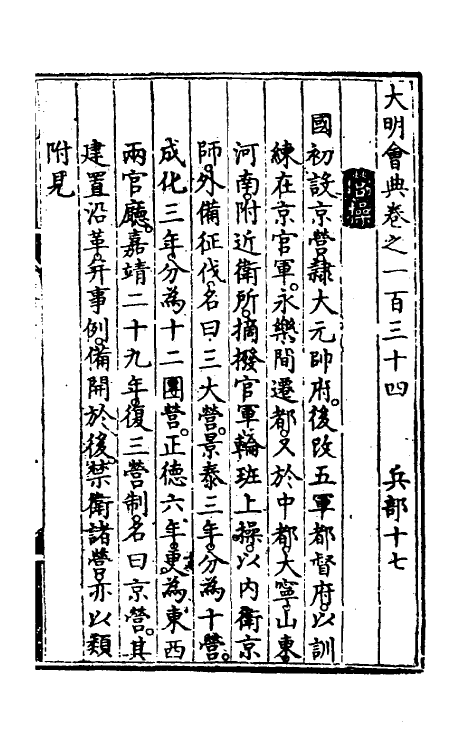 大明會典卷之一百三十四 兵部十七
營操
國初設京營。隸大元帥府。後改五軍都督府。以訓
練在京官軍。永樂間遷都。又於中都。大寧。山東。
河南。附近衛所。摘撥官軍輪班上操。以內衛京
師。外備征伐。名曰三大營。景泰三年。分為十營。
成化三年。分為十二團營。正德六年。更為東西
兩官廳。嘉靖二十九年。復三營制。名曰京營。其
建置沿革。并事例。備開於後。禁衛諸營。亦以類
附見